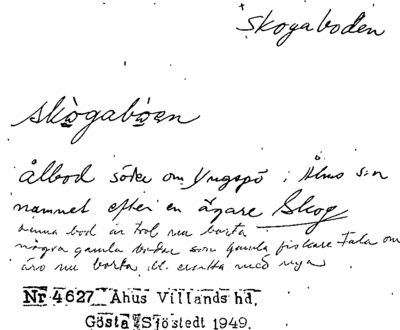 Skogaboden
skogaboen
ålbod söder om Yngspö i Åhus s:n
namnet efter en ägare Skog
denna bod är trol nu borta
några gamla bodar som gamla fiskare tala om
äro nu borta el. ersatta med nya
Nr 4627 Åhus Villands hd,
Gösta Sjöstedt 1949.